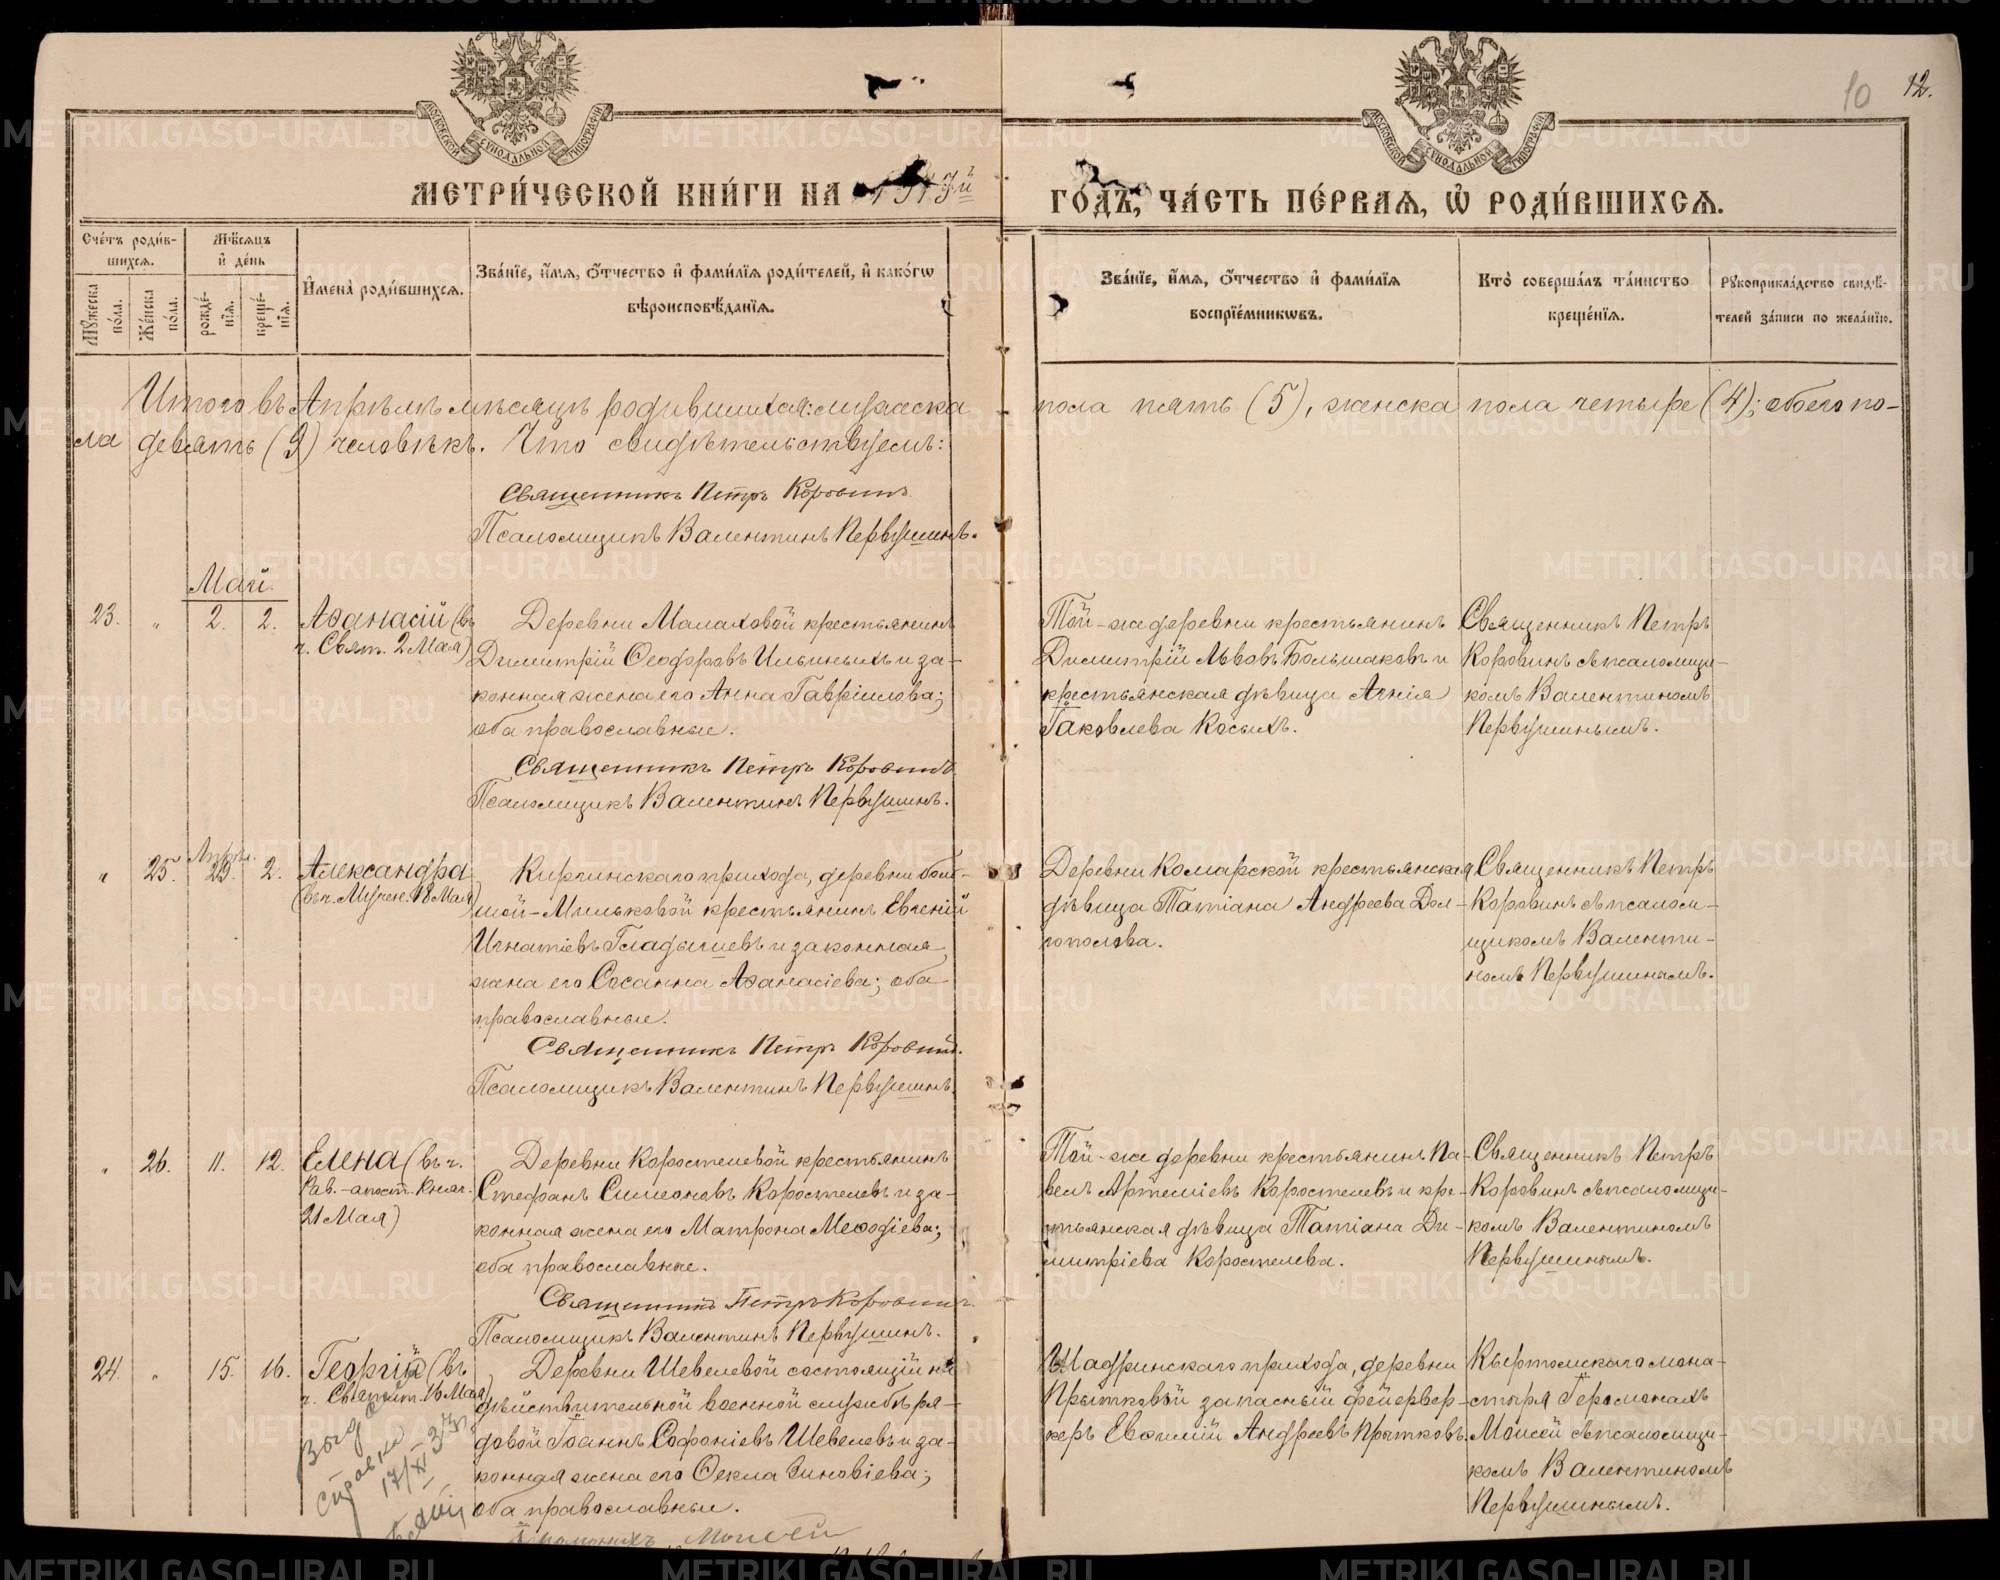 10 12.
МОСКОВСКОЙ СѴНОДАЛЬНОЙ ТИПОГРАФІИ
МОСКОВСКОЙ СѴНОДАЛЬНОЙ ТИПОГРАФІИ
МЕТРИ́ЧЕСКОЙ КНИ́ГИ НА 1913й ГО́ДЪ, ЧА́СТЬ ПЕ́РВАЯ, Ѡ҆ РОДИ́ВШИХСЯ.
Сче́тъ роди́в-
шихся.
Мꙋжеска по́ла.
Же́нска по́ла.
Мѣ́сяцъ
и҆ де́нь
рожде́-
нїя.
креще́-
нїя.
И҆мена̀ роди́вшихся.
Зва́нїе, и҆́мя, ѻ҆́тчество и҆ фами́лїя роди́телей, и҆ како́гѡ
вѣроисповѣ́данїя.
Зва́нїе, и҆́мя, ѻ҆́тчество и҆ фами́лїя
воспрїе́мникѡвъ.
Кто̀ соверша́лъ та́инство
креще́нїя.
Рꙋкоприкла́дство свидѣ́-
телей за́писи по жела́нїю.
Итого въ Апрѣлѣ мѣсяцѣ родившихся: мужеска пола пять (5), женска пола четыре (4); обоего по-
ла девять (9) человѣкъ. Что свидѣтельствуемъ:
Священникъ Петръ Коровинъ
Псаломщикъ Валентинъ Первушинъ.
Май.
23. „ 2. 2. Аѳанасій (въ
ч. Свят. 2 Мая)
Деревни Малаховой крестьянинъ
Димитрій Ѳеодоровъ Ильиныхъ и за-
конная жена его Анна Гавріилова;
оба православные.
Священникъ Петръ Коровинъ
Псаломщикъ Валентинъ Первушинъ.
Той-же деревни крестьянинъ
Димитрій Львовъ Большаковъ и
крестьянская дѣвица Агнія
Іаковлева Косыхъ.
Священникъ Петръ
Коровинъ съ псаломщи-
комъ Валентиномъ
Первушинымъ.
„ 25. Апрѣл. 29. 2. Александра
(въ ч. Мучен. 18 Мая)
Киргинскаго прихода, деревни боль-
шой-Мильковой крестьянинъ Евгеній
Игнатіевъ Гладышевъ и законная
жена его Сосанна Аѳанасіева; оба
православные.
Священникъ Петръ Коровинъ.
Псаломщикъ Валентинъ Первушинъ.
Деревни Комарской крестьянская
дѣвица Татіана Андреева Дол-
гополова.
Священникъ Петръ
Коровинъ съ псалом-
щикомъ Валенти-
номъ Первушинымъ.
„ 26. 11. 12. Елена (въ ч.
Рав.-апост. Княг.
21 Мая)
Деревни Коростелевой крестьянинъ
Стефанъ Симеоновъ Коростелевъ и за-
конная жена его Матрона Меѳодіева;
оба православные.
Священникъ Петръ Коровинъ.
Псаломщикъ Валентинъ Первушинъ.
Той-же деревни крестьянинъ Па-
велъ Артеміевъ Коростелевъ и кре-
стьянская дѣвица Татіана Ди-
митріева Коростелева.
Священникъ Петръ
Коровинъ съ псаломщи-
комъ Валентиномъ
Первушинымъ.
24. „ 15. 16. Георгій (въ
ч. Святит. 16 Мая)
Деревни Шевелевой состоящій на
дѣйствительной военной службѣ ря-
довой Іоаннъ Софоніевъ Шевелевъ и за-
конная жена его Ѳекла Зиновіева;
оба православные.
Іеромонахъ Моисей
Шадринскаго прихода, деревни
Прытковой запасный фейервер-
керъ Евѳимій Андреевъ Прытковъ.
Кыртомскаго мона-
стыря Іеромонахъ
Моисей съ псаломщи-
комъ Валентиномъ
Первушинымъ.
Выдана
справка
17/XI 37
METRIKI.GASO-URAL.RU